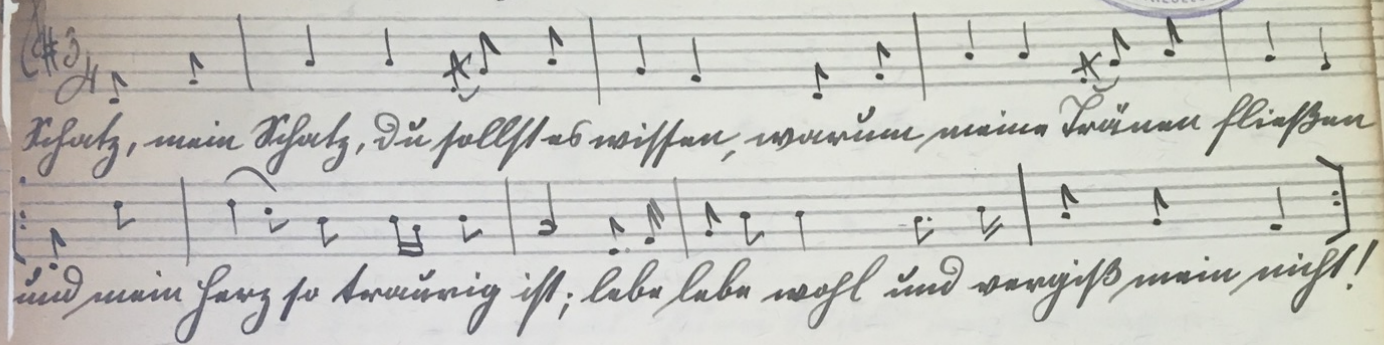 3/4
Schatz, mein Schatz, du sollst es wissen, warum meine Tränen fließen
und mein Herz so traurig ist; lebe lebe wohl und vergiß mein nicht!